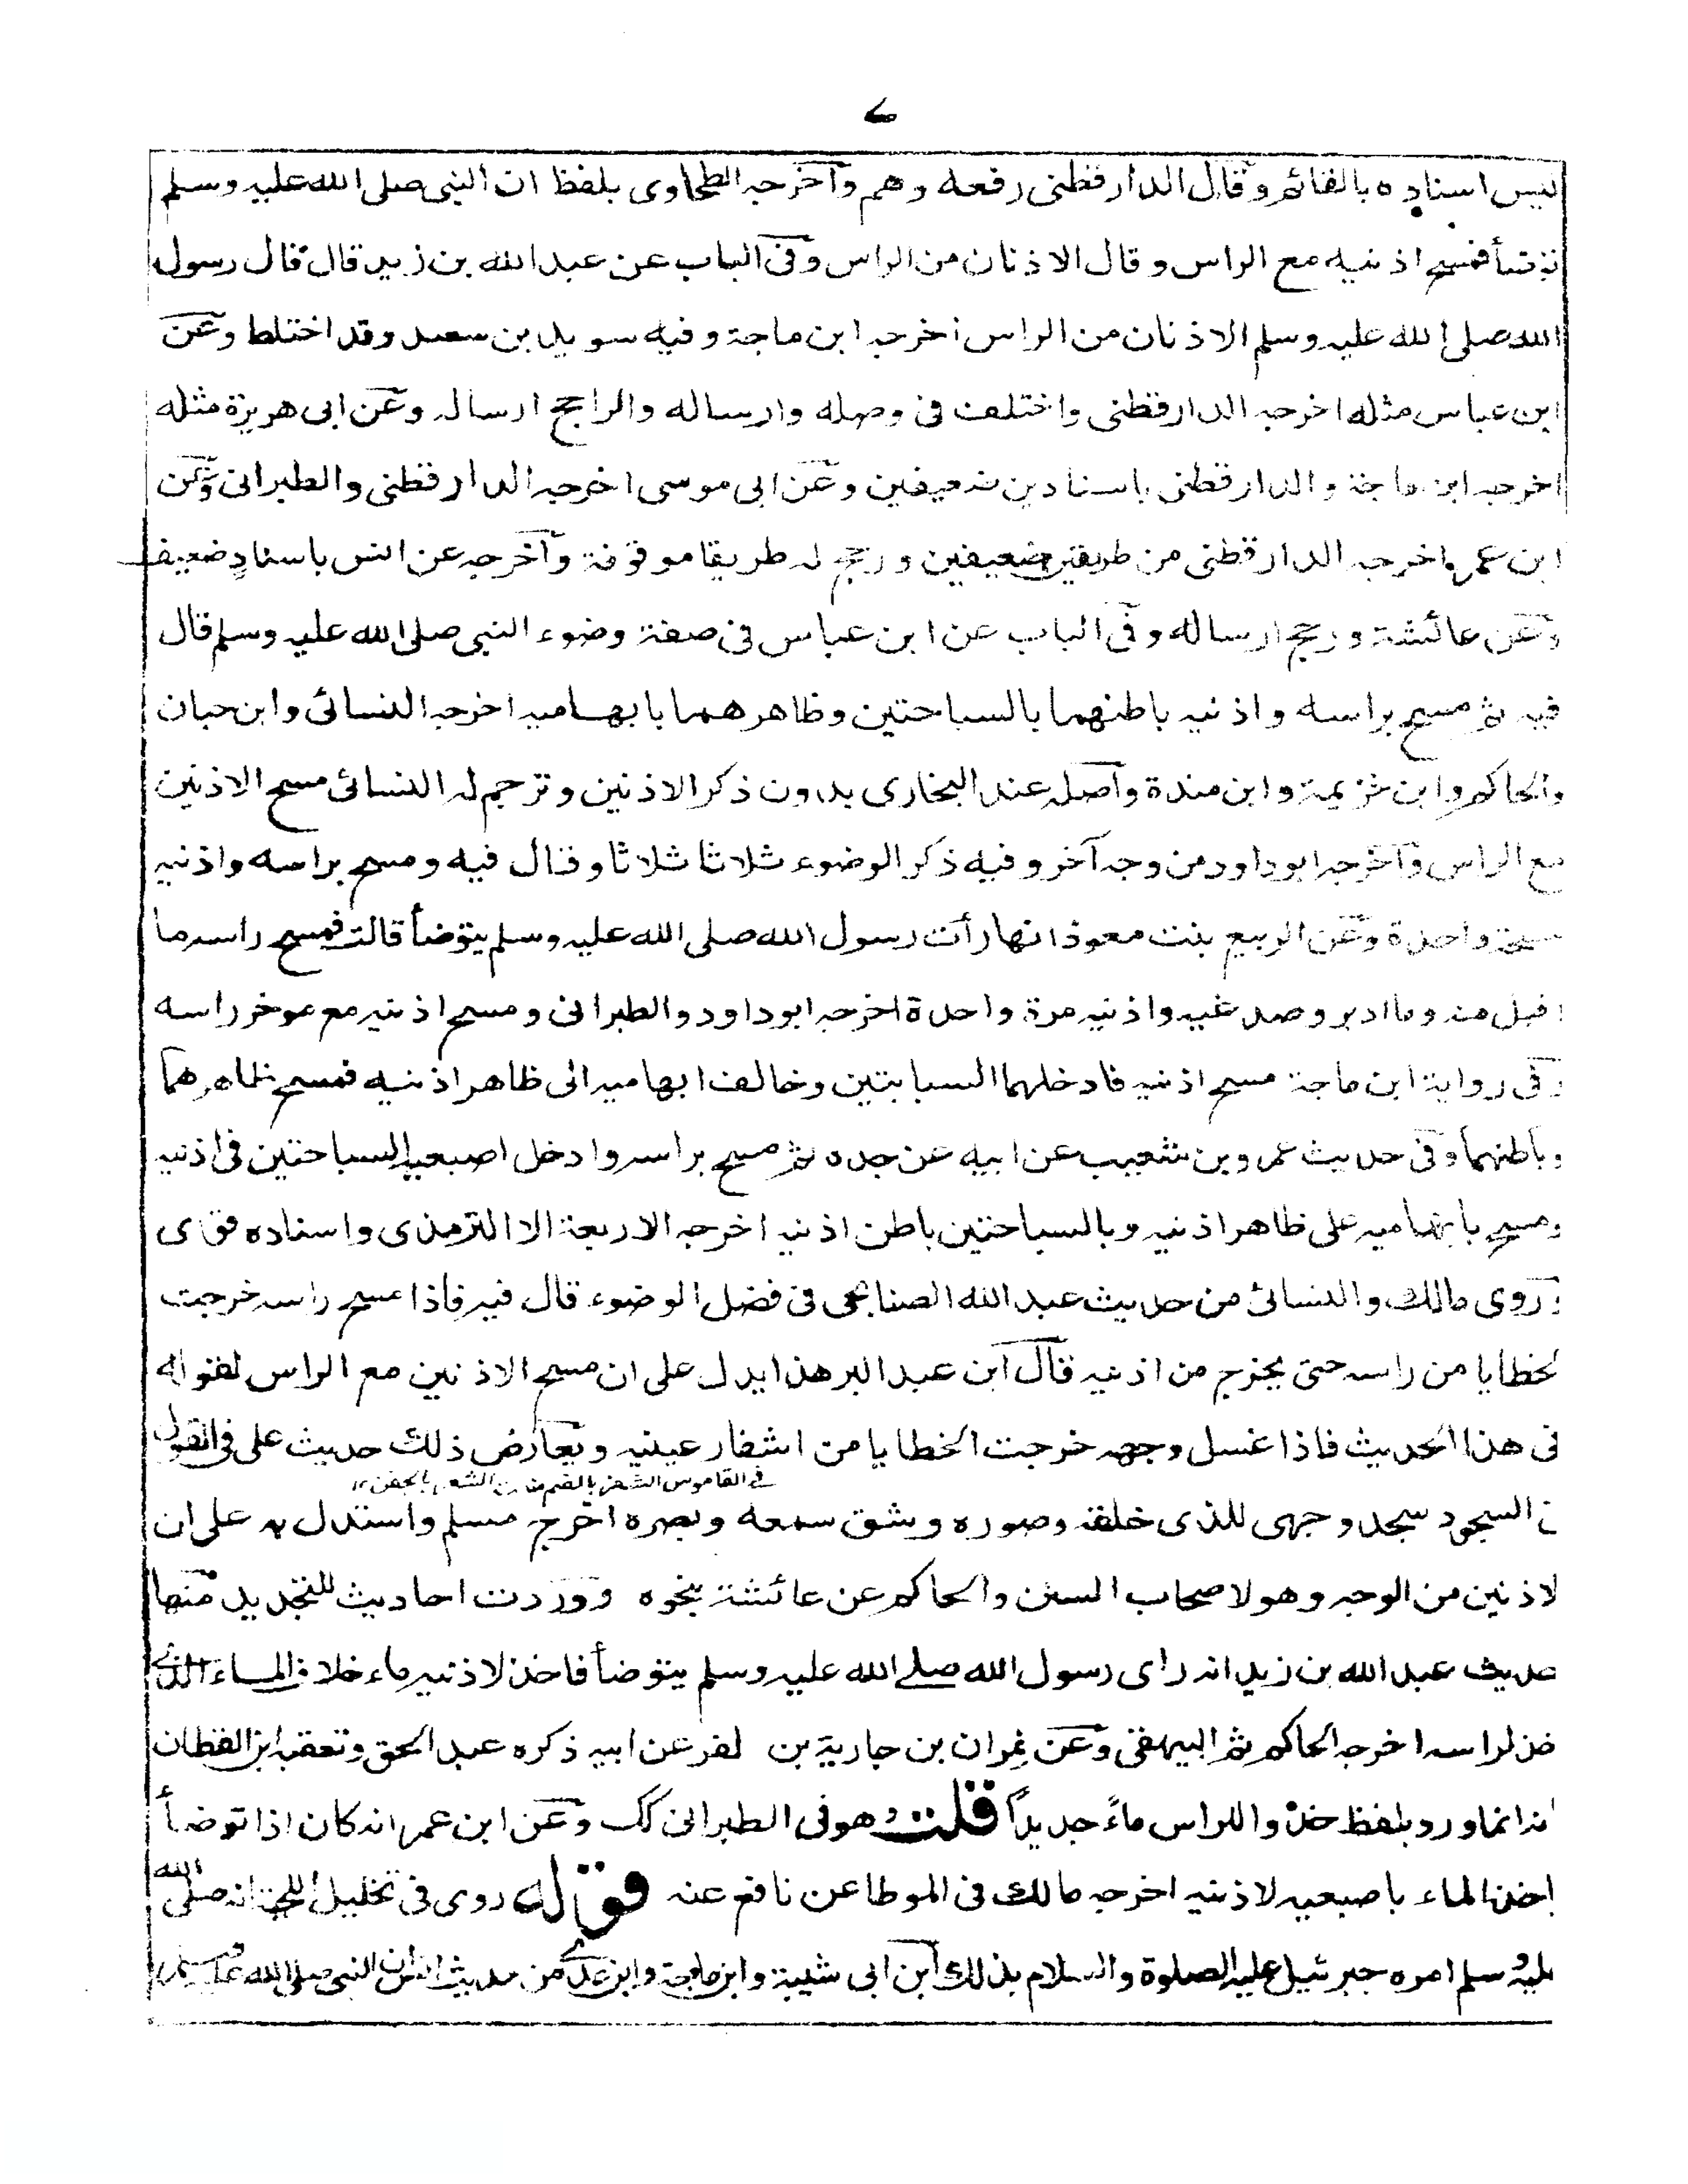 ے
ليس اسناده بالقائم وقال الدارقطنى رفعه وهم وآخرجه الطحاوى بلفظ ان النبى صلى الله عليه وسلم
توضأ فمسح اذنيه مع الراس وقال الاذنان من الراس وفى الباب عن عبد الله بن زيد قال قال رسول
الله صلى الله عليه وسلم الاذنان من الراس اخرجه ابن ماجة وفيه سويد بن سعيد وقد اختلط وعن
ابن عباس مثله اخرجه الدارقطنى واختلف فى وصله وارساله والراجح ارساله وعن ابى هريرة مثله
اخرجه ابن ماجة والدارقطنى باسنادين ضعيفين وعن ابى موسى اخرجه الدارقطنى والطبرانى وعن
ابن عمر اخرجه الدارقطنى من طريقين ضعيفين ورجح له طريقا موقوفة وآخرجه عن انس باسناد ضعيف
وعن عائشة ورجح ارساله وفى الباب عن ابن عباس فى صفة وضوء النبى صلى الله عليه وسلم قال
فيه ثم مسح براسه واذنيه باطنهما بالسباحتين وظاهرهما بابهاميه اخرجه النسائى وابن حبان
والحاكم وابن خزيمة وابن مندة وآصله عند البخارى بدون ذكر الاذنين وترجم له النسائى مسح الاذنين
مع الراس وآخرجه ابو داود من وجه آخر وفيه ذكر الوضوء ثلاثا ثلاثا وقال فيه ومسح براسه واذنيه
مسحة واحدة وعن الربيع بنت معوذ انها رأت رسول الله صلى الله عليه وسلم يتوضأ قالت فمسح راسه ما
اقبل منه وما ادبر وصدغيه واذنيه مرة واحدة اخرجه ابو داود والطبرانى ومسح اذنيه مع موخر راسه
وفى رواية ابن ماجة مسح اذنيه فادخلهما السبابتين وخالف ابهاميه الى ظاهر اذنيه فمسح ظاهرهما
وباطنهما وفى حديث عمرو بن شعيب عن ابيه عن جده ثم مسح براسه وادخل اصبعيه السباحتين فى اذنيه
ومسح بابهاميه على ظاهر اذنيه وبالسباحتين باطن اذنيه اخرجه الاربعة الا الترمذى واسناده قوى
وروى مالك والنسائى من حديث عبد الله الصنابحى فى فضل الوضوء قال فيه فاذا مسح راسه خرجت
لخطايا من راسه حتى يخرج من اذنيه قال ابن عبد البر هذا يدل على ان مسح الاذنين مع الراس لقوله
فى هذا الحديث فاذا غسل وجهه خرجت الخطايا من اشفار عينيه ويعارض ذلك حديث على فى القول
فى القاموس الشفر بالضم منابت الشعر بالجفن ١٢
السجود سجد وجهى للذى خلقه وصوره وشق سمعه وبصره اخرجه مسلم واستدل به على ان
لاذنين من الوجه وهو لاصحاب السنن والحاكم عن عائشة نحوه ووردت احاديث للتجديد منها
حديث عبد الله بن زيد انه راى رسول الله صلے الله عليه وسلم يتوضأ فاخذ لاذنيه ماء خلاف الماء الذے
خذ لراسه اخرجه الحاكم ثم البيهقى وعن نمران بن جارية بن لفر عن ابيه ذكره عبد الحق وتعقبه ابن القطان
انه انما ورد بلفظ خذوا للراس ماءً جديداً قلت وهو فى الطبرانى كك وعن ابن عمر انه كان اذا توضأ
اخذ الماء باصبعيه لاذنيه اخرجه مالك فى الموطا عن نافع عنه قوله روى فى تخليل اللحية انه صلى الله
عليه وسلم امره جبرئيل عليه الصلوة والسلام بذلك ابن ابى شيبة وابن ماجة وابن عدے من حديث انس ان النبى صلى الله عليه وسلم